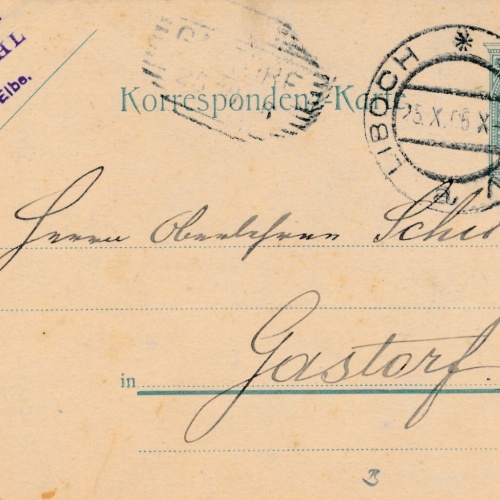 Elbe.
Korrespondenz-Karte
LIBOCH
25.X.06 X
a
Herrn Oberlehrer
in Gastorf
B